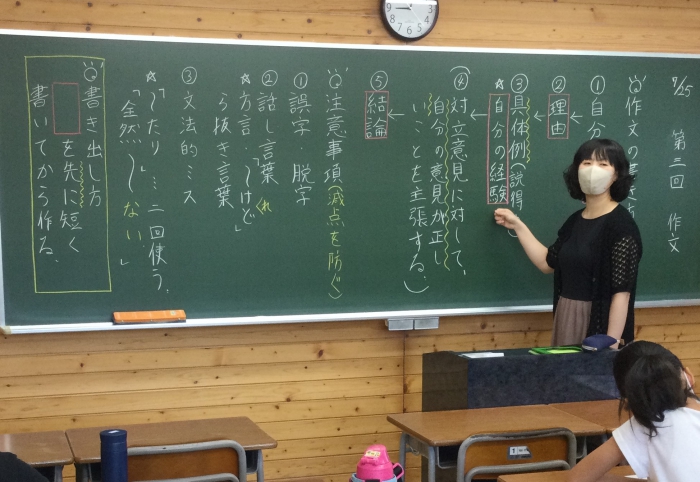 9/25
第三回 作文
作文の書き方
①自分
②理由
③具体例(説得
☆自分の経験
④(対立意見に対して、
自分の意見が正し
いことを主張する。)
⑤結論
注意事項(減点を防ぐ)
①誤字・脱字
②話し言葉
☆方言・「〜けど」
れ
ら抜き言葉
③文法的ミス
☆「〜たり」…二回使う。
「全然〜ない。」
書き出し方
を先に短く
書いてから作る。